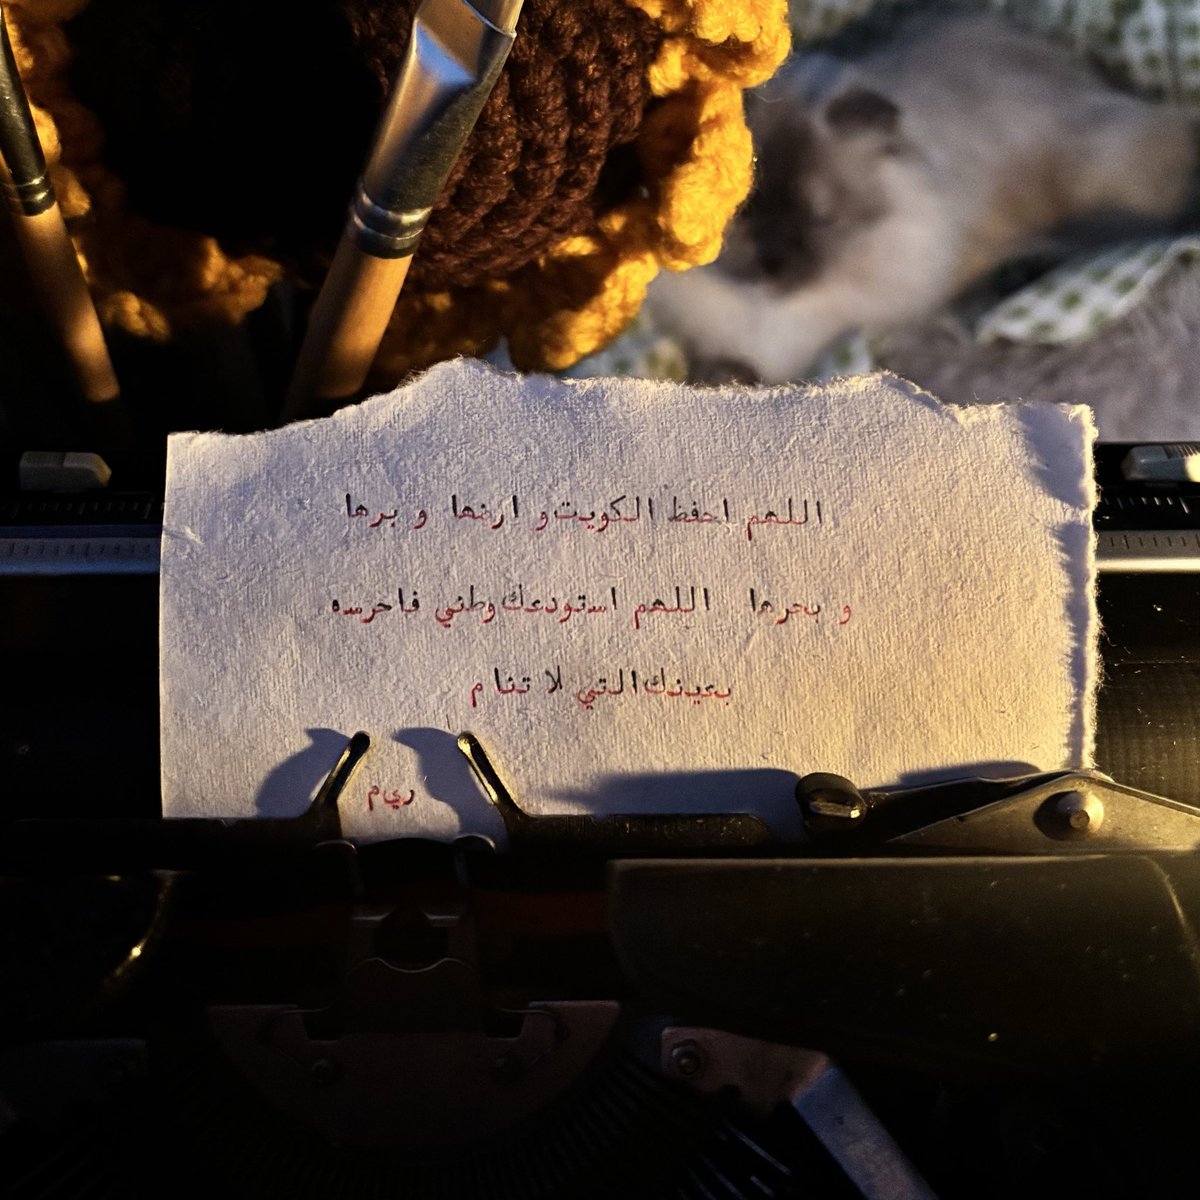 اللهم احفظ الكويت و ارضها و برها
و بحرها اللهم استودعك وطني فاحرسه
بعينك التي لا تنام
ريم